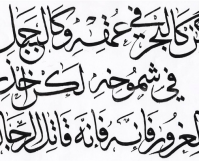 كن كالبحر في عمقه وكالجبل
في شموخه لكن حذار
الغرور فإنه فإنه قاتل الرجال